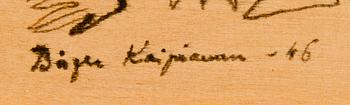 Birger Kaipiainen -46